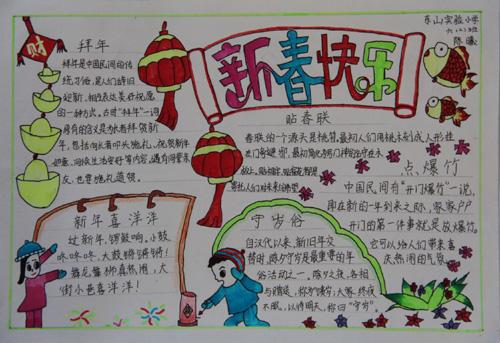 东山实验小学
六(二)班
陈曦
新春快乐
财
拜年
拜年是中国民间的传
统习俗,是人们辞旧
迎新、相互表达美好祝愿
的一种方式。古时"拜年"一词
原有的含义是为长者拜贺新
年,包括向长者叩头施礼、祝贺新年
如意、问候生活安好等内容。遇有同辈亲
友,也要施礼道贺。
贴春联
春联的一个源头是桃符。最初人们用桃木刻成人形挂
点爆竹
中国民间有"开门爆竹"一说,
即在新的一年到来之际,家家户户
开门的第一件事就是放爆竹。
它可以给人们带来喜
庆热闹的气氛
新年喜洋洋
过新年,锣鼓响。小鼓
咚咚咚,大鼓锵锵锵!
舞龙舞狮真热闹,大
街小巷喜洋洋!
守岁俗
自汉代以来,新旧年交
替时,
俗活动之一,除夕之夜,各相
与赠送,称为"馈岁";大家终夜
不眠,以待天明,称曰"守岁"。